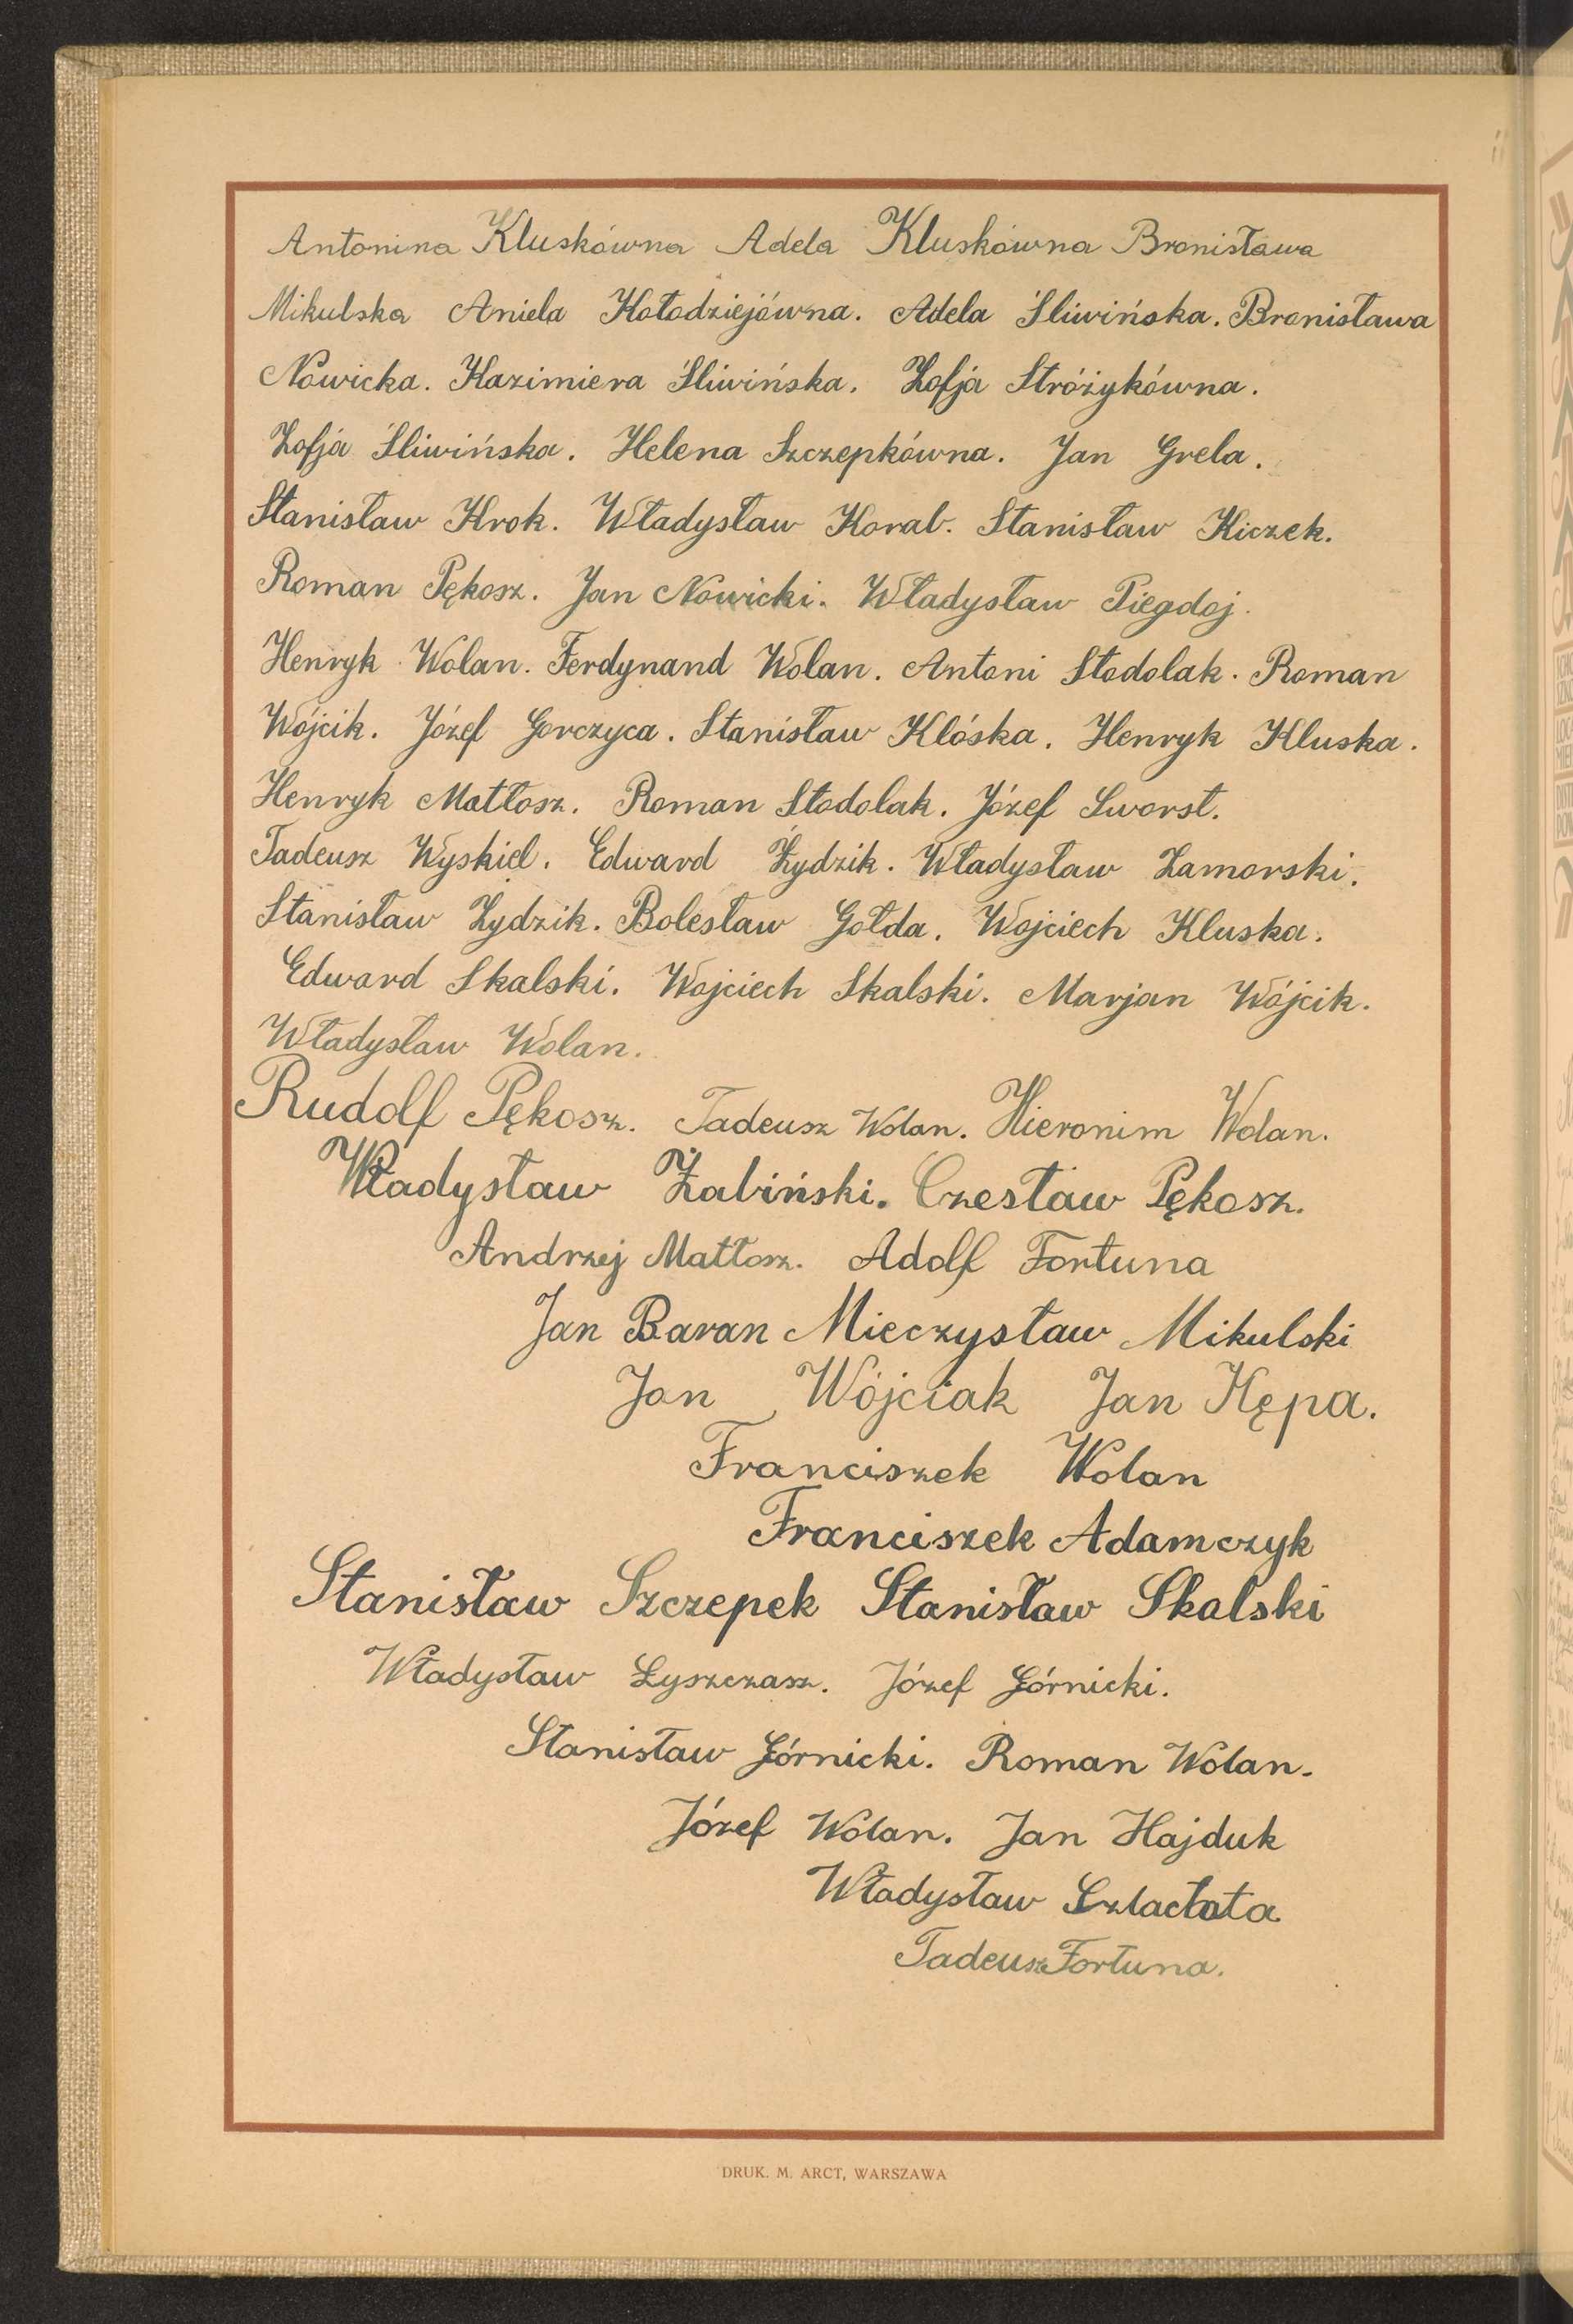 Antonina Kluskówna Adela Kluskówna Bronisława
Mikulska Aniela Kołodziejówna. Adela Śliwińska. Bronisława
Nowicka. Kazimiera Śliwińska. Zofja Stróżykówna.
Zofja Śliwińska. Helena Szczepkówna. Jan Grela.
Stanisław Krok. Władysław Korab. Stanisław Kiczek.
Roman Pękosz. Jan Nowicki. Władysław Piegdoj.
Henryk Wolan. Ferdynand Wolan. Antoni Stodolak. Roman
Wójcik. Józef Gorczyca. Stanisław Klóska. Henryk Kluska.
Henryk Matłosz. Roman Stodolak. Józef Sworst.
Tadeusz Wyskiel. Edward Żydzik. Władysław Zamorski.
Stanisław Żydzik. Bolesław Gołda. Wojciech Kluska.
Edward Skalski. Wojciech Skalski. Marjan Wójcik.
Władysław Wolan.
Rudolf Pękosz. Tadeusz Wolan. Hieronim Wolan.
Władysław Żabiński. Czesław Pękosz.
Andrzej Matłosz. Adolf Fortuna
Jan Baran Mieczysław Mikulski
Jan Wójciak Jan Kępa.
Franciszek Wolan
Franciszek Adamczyk
Stanisław Szczepek Stanisław Skalski
Władysław Łyszczasz. Józef Górnicki.
Stanisław Górnicki. Roman Wolan.
Józef Wolan. Jan Hajduk
Władysław
Tadeusz Fortuna.
DRUK. M. ARCT, WARSZAWA